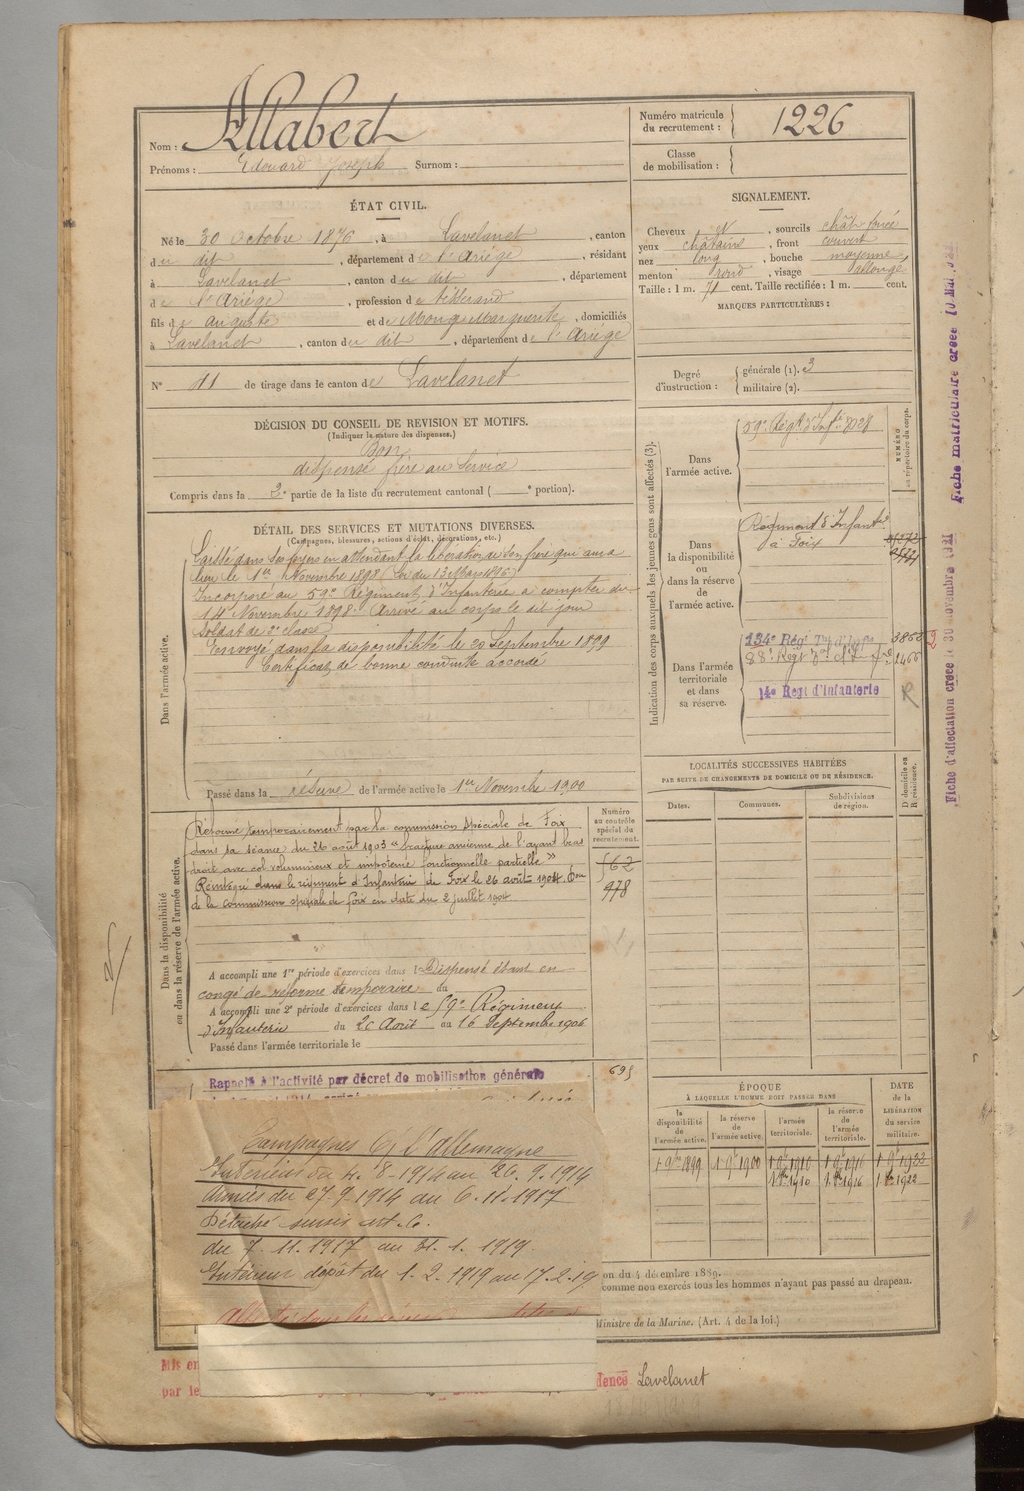 Nom : Allabert
Prénoms : Edouard Joseph Surnom :
Numéro matricule du recrutement : 1226
Classe de mobilisation :
ÉTAT CIVIL.
Né le 30 Octobre 1876, à Lavelanet, canton
du dit, département de l'Ariège, résidant
à Lavelanet, canton du dit, département
de l'Ariège, profession de tisserand
fils de Auguste et de Marguerite, domiciliés
à Lavelanet, canton du dit, département de l'Ariège
N° 11 de tirage dans le canton de Lavelanet
SIGNALEMENT.
Cheveux et, sourcils chât foncé
yeux châtains, front couvert
nez long, bouche moyenne,
menton rond, visage allongé
Taille : 1 m. 71 cent. Taille rectifiée : 1 m. cent.
MARQUES PARTICULIÈRES :
Degré d'instruction : générale (1). 3
militaire (2).
DÉCISION DU CONSEIL DE REVISION ET MOTIFS.
(Indiquer la nature des dispenses.)
Bon
dispensé frère au service
Compris dans la 2e partie de la liste du recrutement cantonal ( e portion).
DÉTAIL DES SERVICES ET MUTATIONS DIVERSES.
(Campagnes, blessures, actions d'éclat, décorations, etc.)
Dans l'armée active.
Laissé dans ses foyers en attendant la libération de son frère qui aura
lieu le 1er Novembre 1898 (Loi du 13 Mai 1896)
Incorporé au 59e Régiment d'Infanterie à compter du
14 Novembre 1898. Arrivé au corps le dit jour
Soldat de 2e classe
Envoyé dans la disponibilité le 20 Septembre 1899
Certificat de bonne conduite accordé
Passé dans la réserve de l'armée active le 1er Novembre 1900
Dans la disponibilité ou dans la réserve de l'armée active.
Réformé temporairement par la commission spéciale de Foix
dans sa séance du 26 août 1903 "fracture ancienne de l'avant bras
droit avec col volumineux et impotence fonctionnelle partielle"
Réintégré dans le régiment d'Infanterie de Foix le 26 août 1904 Don
de la commission spéciale de Foix en date du 2 juillet 1904
A accompli une 1re période d'exercices dans l Dispensé étant en
congé de réforme temporaire du
A accompli une 2e période d'exercices dans le 59e Régiment
d'Infanterie du 20 Août au 16 Septembre 1906
Passé dans l'armée territoriale le
Numéro au contrôle spécial du recrutement.
562
978
695
Rappelé à l'activité par décret de mobilisation générale
Campagnes C/ l'allemagne
Intérieur du 4.8.1914 au 26.9.1914
Armées du 27.9.1914 au 6.11.1917
Détaché sursis art. 6.
du 7.11.1917 au 31.1.1919.
Intérieur dépôt du 1.2.1919 au 17.2.19
Indication des corps auxquels les jeunes gens sont affectés (3).
NUMÉRO au répertoire du corps.
Dans l'armée active.
59e Régt d'Infie 8728
Dans la disponibilité ou dans la réserve de l'armée active.
Régiment d'Infantie
à Foix
Dans l'armée territoriale et dans sa réserve.
134e Régt Tal d'Infie 3862
88e Régt 1466
14e Regt d'Infanterie
R
LOCALITÉS SUCCESSIVES HABITÉES
PAR SUITE DE CHANGEMENTS DE DOMICILE OU DE RÉSIDENCE.
Dates. Communes. Subdivisions de région. D domicile ou R résidence.
ÉPOQUE À LAQUELLE L'HOMME DOIT PASSER DANS
la disponibilité de l'armée active. la réserve de l'armée active. l'armée territoriale. la réserve de l'armée territoriale.
DATE de la LIBÉRATION du service militaire.
1 9bre 1899 1 9e 1900 1 9e 1910 1 9e 1916
1910 1916 1922
on du 4 décembre 1889.
comme non exercés tous les hommes n'ayant pas passé au drapeau.
Ministre de la Marine. (Art. 4 de la loi.)
Mis en
par le
dence Lavelanet
Fiche d'affectation créée le 30 novembre 1921
Fiche matriculaire créée 10 MAI 1922